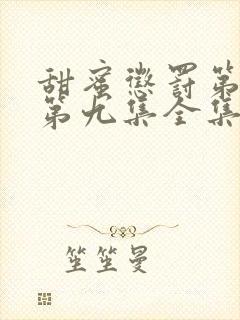 甜蜜惩罚第
第九集全集
笙笙曼